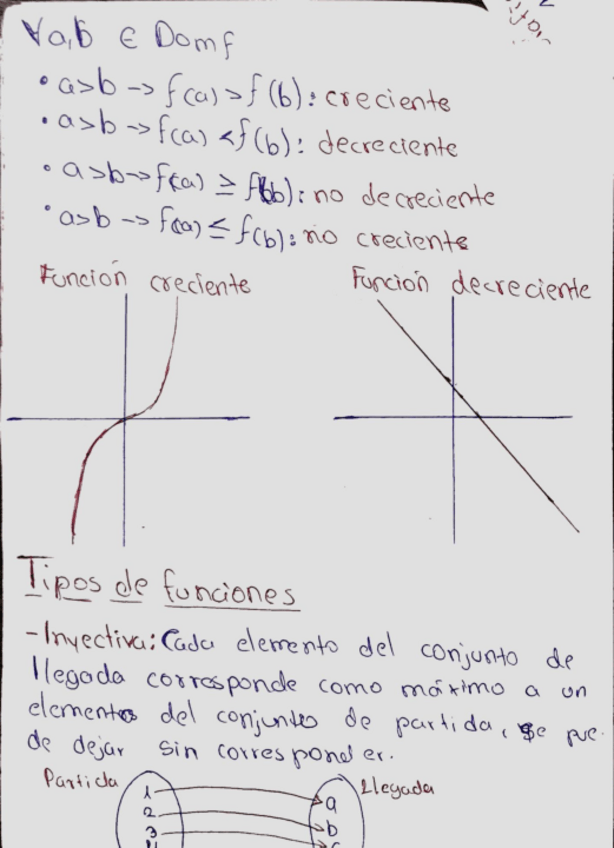 ∀a,b ∈ Domf
• a>b -> f(a) > f(b): creciente
• a>b -> f(a) < f(b): decreciente
• a>b -> f(a) ≥ f(b): no decreciente
• a>b -> f(a) ≤ f(b): no creciente
Función creciente
Función decreciente
Tipos de funciones
-Inyectiva: Cada elemento del conjunto de
llegada corresponde como máximo a un
elemento del conjunto de partida, se pue-
de dejar sin corresponder.
Partida
Llegada
1
a
2
b
3